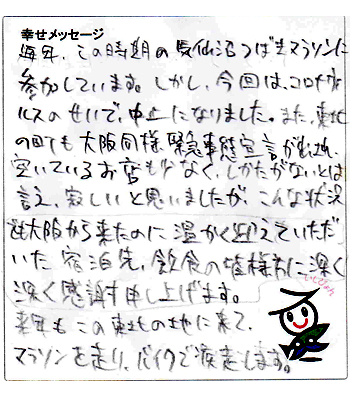 幸せメッセージ
毎年、この時期の気仙沼つばきマラソンに
参加しています。しかし、今回は、コロナウイ
ルスのせいで、中止になりました。また、東北
の町でも大阪同様緊急事態宣言が出され、
空いているお店も少なく、しかたがないとは
言え、寂しいと思いましたが、こんな状況
でも大阪から来たのに温かく迎えていただ
いた宿泊先、飲食の皆様方に深く
深く感謝申し上げます。
来年もこの東北の地に来て、
マラソンを走り、バイクで疾走します。